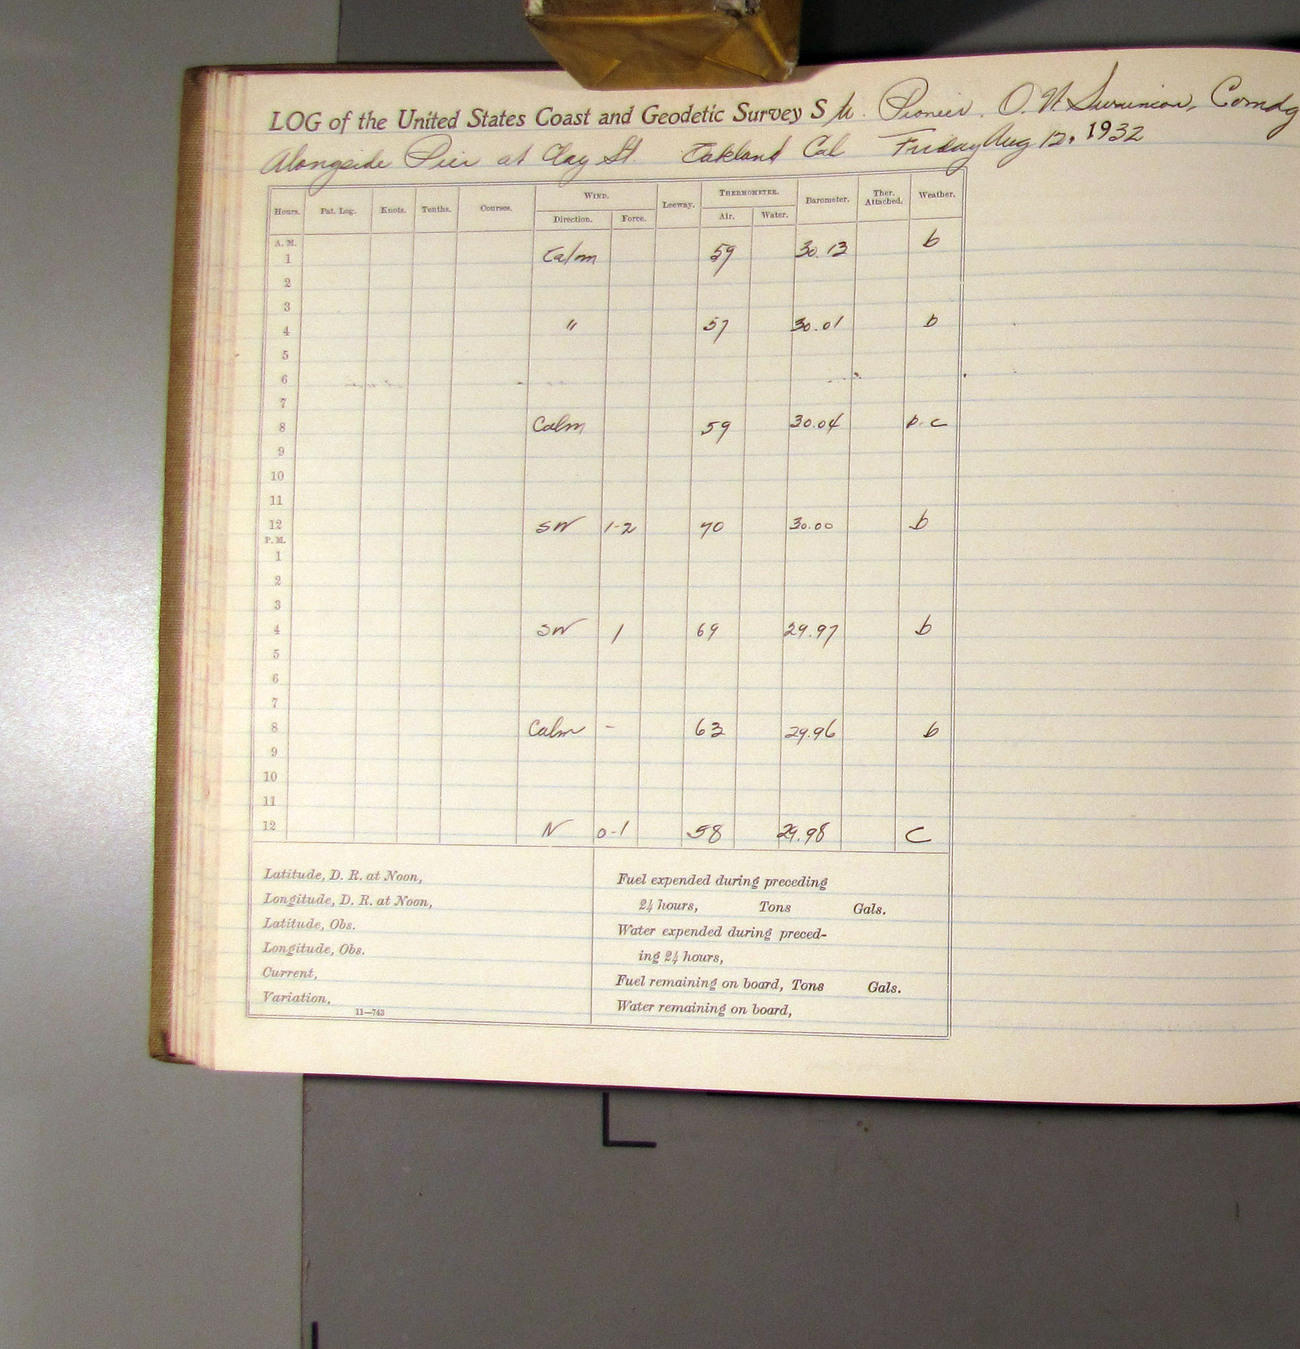 LOG of the United States Coast and Geodetic Survey S Pioneer. O. W. Swainson, Comdg
Alongside Pier at Clay St. Oakland Cal Friday Aug 12, 1932
Hours. Pat. Log. Knots. Tenths. Courses. WIND. Leeway. THERMOMETER. Barometer. Ther. Attached. Weather.
Direction. Force. Air. Water.
A. M.
1 Calm 59 30.13 b
2
3
4 " 57 30.01 b
5
6
7
8 Calm 59 30.04 b.c
9
10
11
12 SW 1-2 70 30.00 b
P. M.
1
2
3
4 SW 1 69 29.97 b
5
6
7
8 Calm - 63 29.96 b
9
10
11
12 N 0-1 58 29.98 C
Latitude, D. R. at Noon,
Longitude, D. R. at Noon,
Latitude, Obs.
Longitude, Obs.
Current,
Variation,
11—743
Fuel expended during preceding
24 hours, Tons Gals.
Water expended during preced-
ing 24 hours,
Fuel remaining on board, Tons Gals.
Water remaining on board,